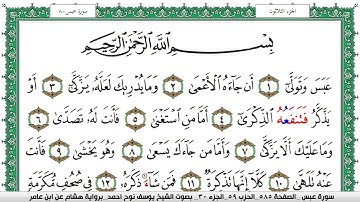 الجزء الثلاثون
سورة عبس - ٨٠
بِسْمِ اللَّهِ الرَّحْمَٰنِ الرَّحِيمِ
عَبَسَ وَتَوَلَّىٰٓ ١ أَن جَآءَهُ ٱلْأَعْمَىٰ ٢ وَمَا يُدْرِيكَ لَعَلَّهُۥ يَزَّكَّىٰٓ ٣ أَوْ
يَذَّكَّرُ فَتَنفَعُهُ ٱلذِّكْرَىٰٓ ٤ أَمَّا مَنِ ٱسْتَغْنَىٰ ٥ فَأَنتَ لَهُۥ تَصَدَّىٰ ٦
وَمَا عَلَيْكَ أَلَّا يَزَّكَّىٰ ٧ وَأَمَّا مَن جَآءَكَ يَسْعَىٰ ٨ وَهُوَ يَخْشَىٰ ٩ فَأَنتَ
عَنْهُ تَلَهَّىٰ ١٠ كَلَّآ إِنَّهَا تَذْكِرَةٌ ١١ فَمَن شَآءَ ذَكَرَهُۥ ١٢ فِى صُحُفٍ مُّكَرَّمَةٍ
سورة عبس الصفحة ٥٨٥ الحزب ٥٩ الجزء ٣٠ . بصوت الشيخ يوسف نوح احمد برواية هشام عن ابن عامر